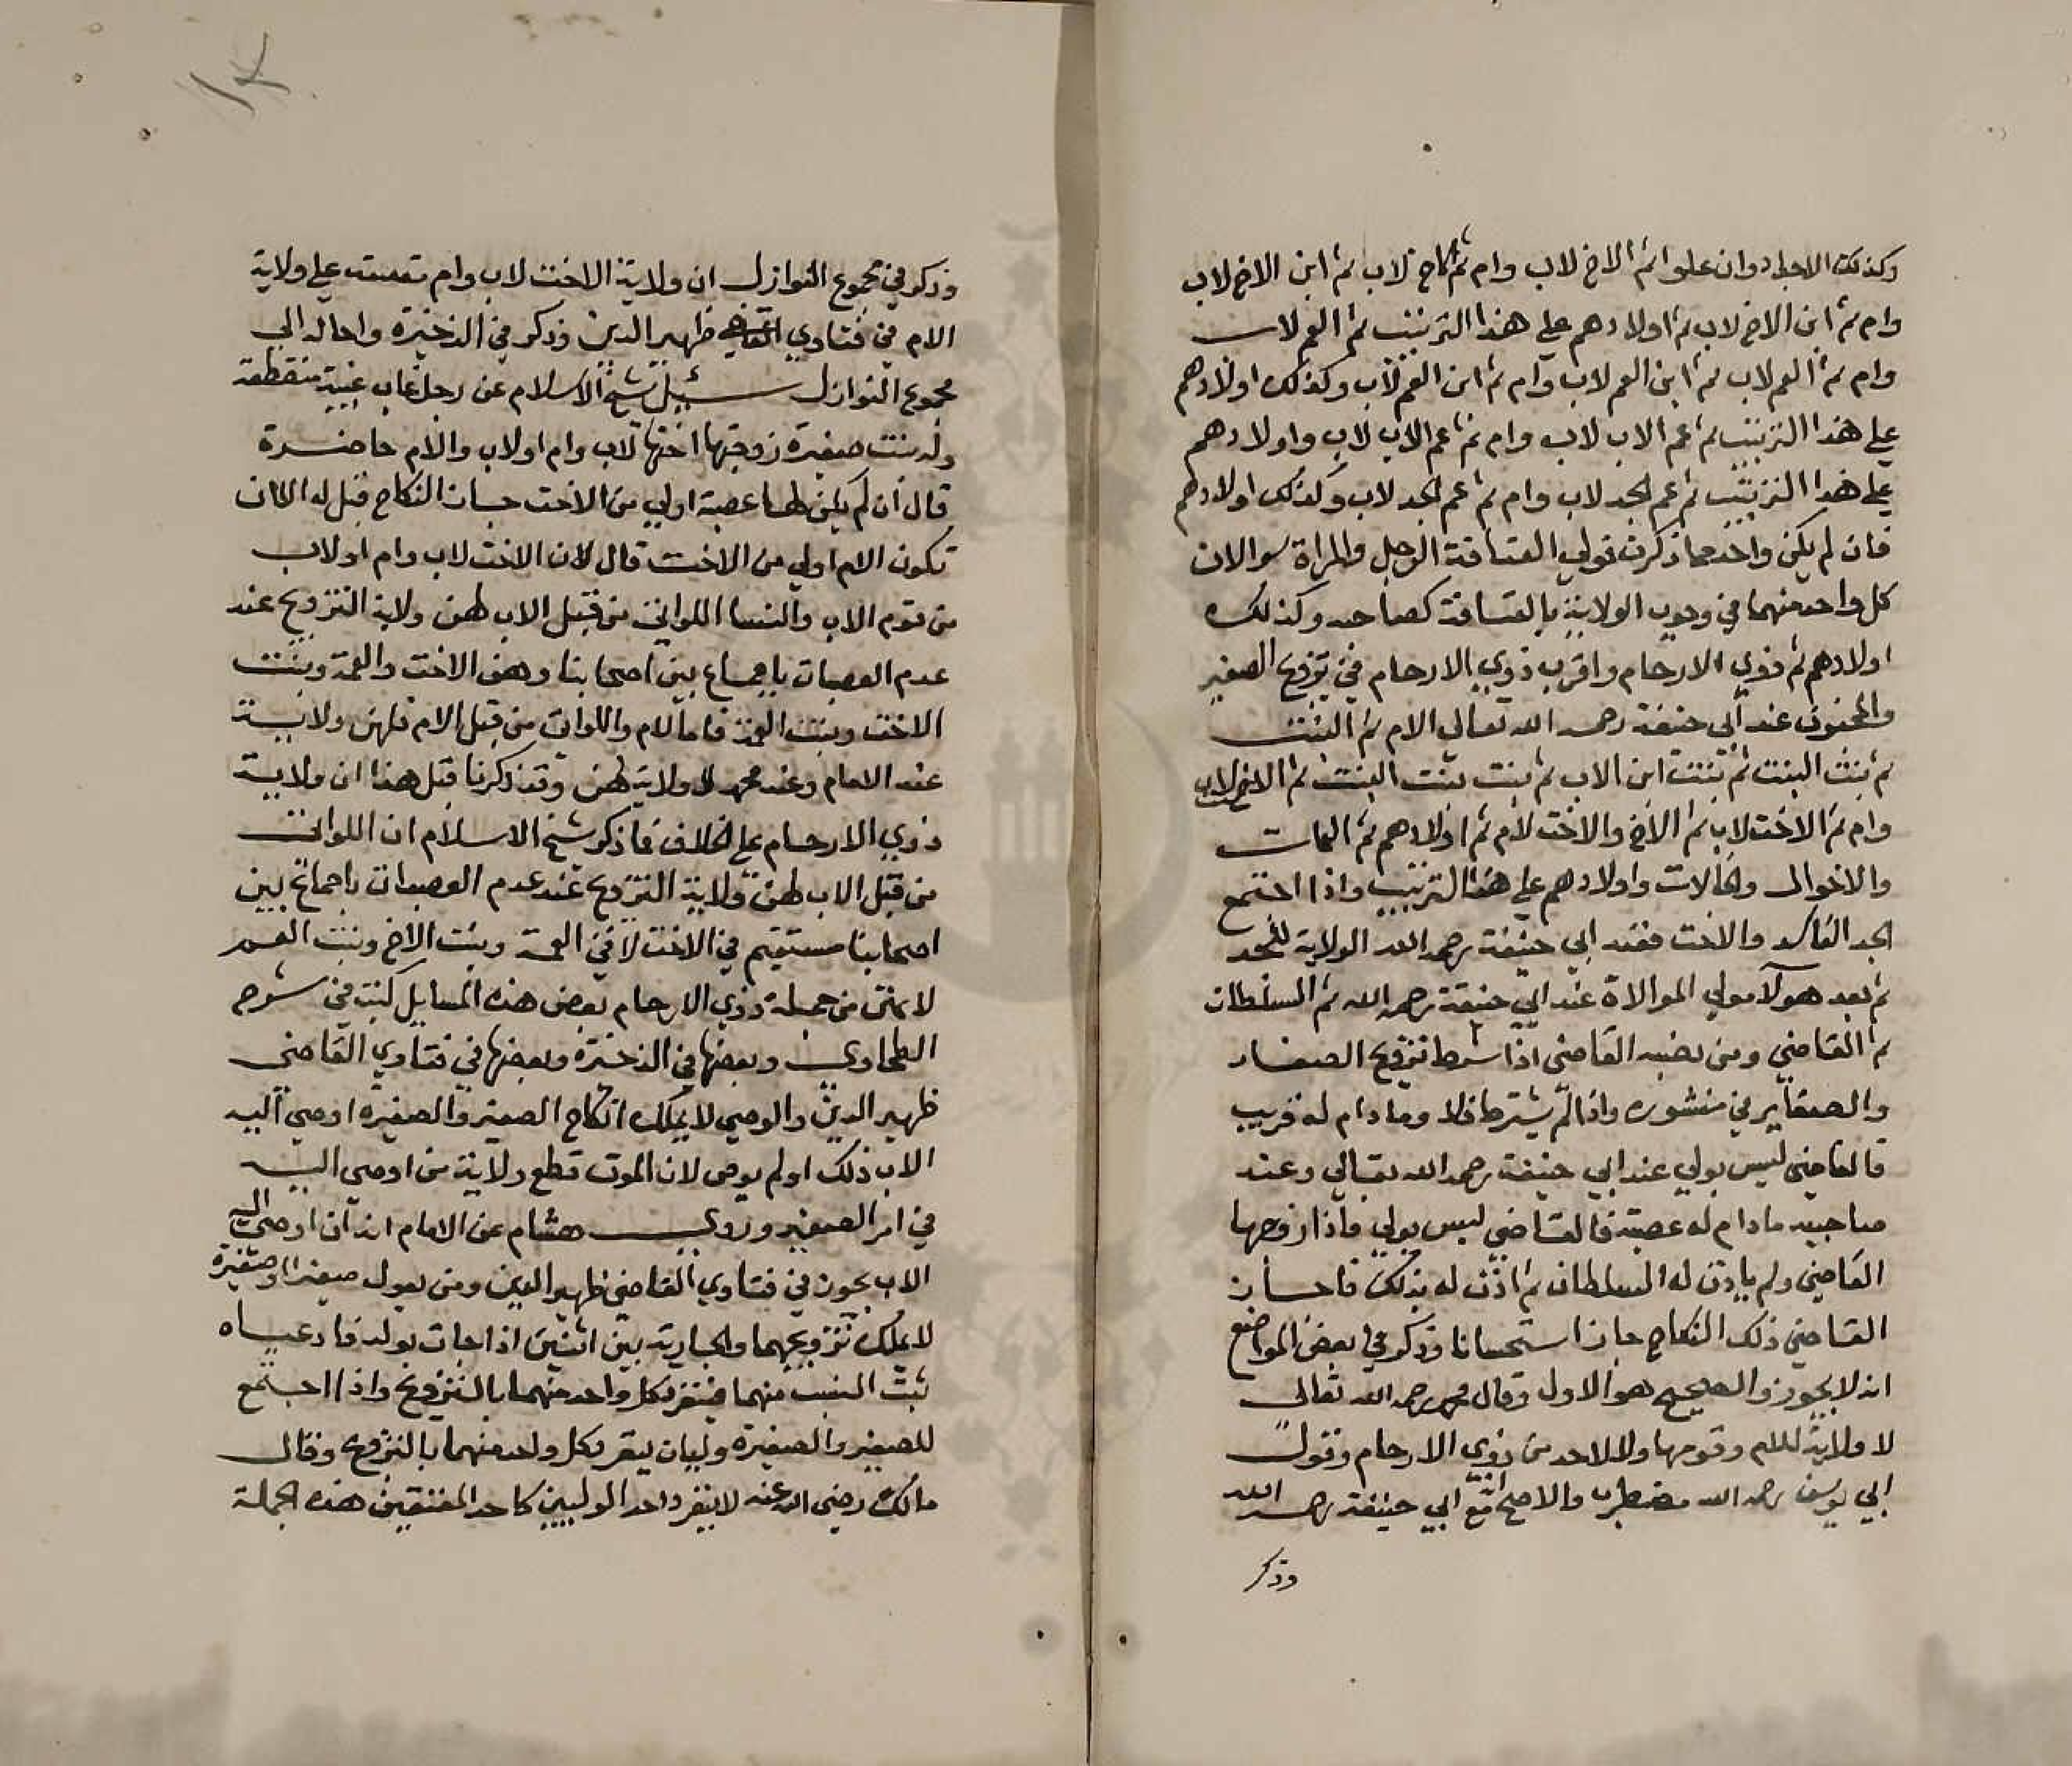 وكذلك الاجداد وان علوا ثم الاخ لاب وام ثم الاخ لاب ثم ابن الاخ لاب
وام ثم ابن الاخ لاب ثم اولادهم علي هذا الترتيب ثم العم لاب
وام ثم العم لاب ثم ابن العم لاب وام ثم ابن العم لاب وكذلك اولادهم
علي هذا الترتيب ثم عم الاب لاب وام ثم عم الاب لاب واولادهم
علي هذا الترتيب ثم عم الجد لاب وام ثم عم الجد لاب وكذلك اولادهم
فان لم يكن واحد مما ذكرنا فولي العتاقة الرجل والمراة سوا لان
كل واحد منهما في وجوب الولاية بالعتاقة كصاحبه وكذلك
اولادهم ثم ذوي الارحام واقرب ذوي الارحام في تزويج الصغير
والمجنون عند ابي حنيفة رحمه الله تعالي الام ثم البنت
ثم بنت البنت ثم بنت ابن الاب ثم بنت بنت البنت ثم الاخ لاب
وام ثم الاخت لاب ثم الاخ والاخت لام ثم اولادهم ثم العمات
والاخوال والخالات واولادهم علي هذا الترتيب واذا اجتمع
الجد الفاسد والاخت فعند ابي حنيفة رحمه الله الولاية للجد
ثم بعد هولآ مولي الموالاة عند ابي حنيفة رحمه الله ثم السلطان
ثم القاضي ومن نصبه القاضي اذا شرط تزويج الصغار
والصغاير في منشوره واذا لم يشترط فلا وما دام له قريب
فالقاضي ليس بولي عند ابي حنيفة رحمه الله تعالي وعند
صاحبيه ما دام له عصبة فالقاضي ليس بولي واذا زوجها
القاضي ولم ياذن له السلطان ثم اذن له بذلك فاجاز
القاضي ذلك النكاح جاز استحسانا وذكر في بعض المواضع
انه لا يجوز والصحيح هو الاول وقال محمد رحمه الله تعالي
لا ولاية للام وقومها ولا لاحد من ذوي الارحام وقول
ابي يوسف رحمه الله مضطرب والاصح انه مع ابي حنيفة رحمه الله
وذكر
وذكر في مجموع النوازل ان ولاية الاخت لاب وام تقدمت علي ولاية
الام في فتاوي القاضي ظهير الدين وذكر في الذخيرة واحاله الي
مجموع النوازل سئيل شيخ الاسلام عن رجل غاب غيبة منقطعة
وله بنت صغيرة زوجتها اختها لاب وام او لاب والام حاضرة
قال ان لم يكن لها عصبة اولي من الاخت جاز النكاح قيل له الان
تكون الام اولي من الاخت قال لان الاخت لاب وام او لاب
من قوم الاب والنسا اللواتي من قبل الاب لهن ولاية التزويج عند
عدم العصبات باجماع بين اصحابنا وهن الاخت والعمة وبنت
الاخت وبنت العم فاما الام واللوات من قبل الام فلهن ولاية
عند الامام وعند محمد لا ولاية لهن وقد ذكرنا قبل هذا ان ولاية
ذوي الارحام علي الخلاف فما ذكر شيخ الاسلام ان اللواتي
من قبل الاب لهن ولاية التزويج عند عدم العصبات باجماع بين
اصحابنا مستقيم في الاخت لا في العمة وبنت الاخ وبنت العم
لانهن من جملة ذوي الارحام بعض هذه المسايل كتبت في شرح
الطحاوي وبعضها في الذخيرة وبعضها في فتاوي القاضي
ظهير الدين والوصي لا يملك انكاح الصغير والصغيرة اوصي اليه
الاب ذلك او لم يوص لان الموت قطع ولاية من اوصي اليه
في امر الصغير وروي هشام عن الامام انه ان اوصي اليه
الاب يجوز في فتاوي القاضي ظهير الدين ومن يعول صغيرا او صغيرة
لا يملك تزويجهما والجارية بين اثنين اذا جات بولد فادعياه
ثبت النسب منهما فينفرد كل واحد منهما بالتزويج واذا اجتمع
للصغير والصغيرة وليان ينفرد كل واحد منهما بالتزويج وقال
مالك رضي الله عنه لا ينفرد احد الوليين كاحد المعتقين هذه الجملة